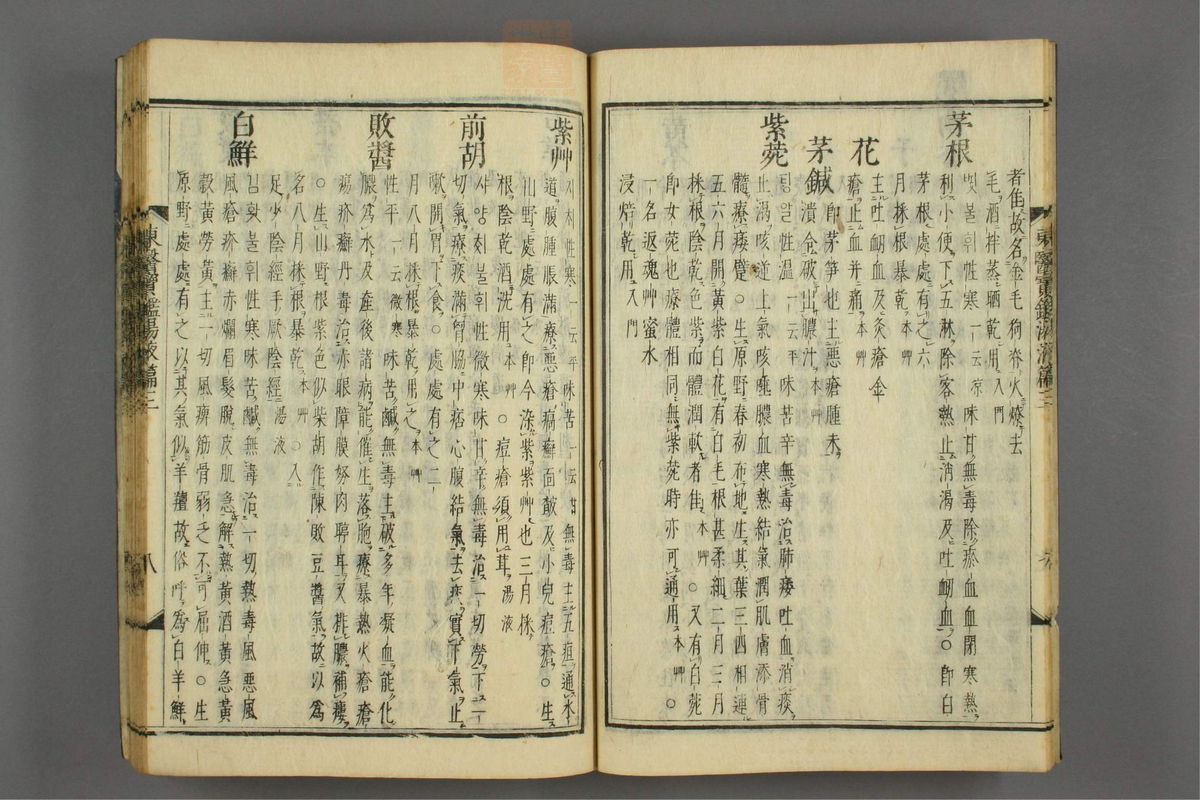 者佳故名金毛狗脊火燎去
毛酒拌蒸晒乾用入門
茅根 불휘性寒一云凉味甘無毒除瘀血血閉寒熱
利小便下五淋除客熱止消渴及吐衄血○即白
茅根處處有之六
月採根暴乾本艸
花 主吐衄血及灸瘡
瘡止血幷痛本艸
茅鍼 即茅筍也主惡瘡腫未
潰令破出膿汁本艸
紫菀 ᄐᆡᆼ알性溫一云平味苦辛無毒治肺痿吐血消痰
止渴咳逆上氣咳唾膿血寒熱結氣潤肌膚添骨
髓療痿躄○生原野春初布地生其葉三四相連
五六月開黃紫白花有白毛根甚柔細二月三月
採根陰乾色紫而體潤軟者佳本艸○又有白菀
即女菀也療體相同無紫菀時亦可通用本艸○
一名返魂艸蜜水
浸焙乾用入門
東醫寶鑑湯液篇三
紫艸 지최性寒一云平味苦一云甘無毒主五疸通水
道腹腫脹滿療惡瘡瘑癬面皶及小兒痘瘡○生
山野處處有之即今染紫紫艸也三月採
根陰乾酒洗用本艸○痘瘡須用茸湯液
前胡 샤양ᄎᆡ불휘性微寒味甘辛無毒治一切勞下一
切氣療痰滿胸脇中痞心腹結氣去痰實下氣止
嗽開胃下食○處處有之二
月八月採根暴乾用之本艸
敗醬 性平一云微寒味苦鹹無毒主破多年凝血能化
膿爲水及産後諸病能催生落胞療暴熱火瘡瘡
瘍疥癬丹毒治赤眼障膜努肉聤耳又排膿補瘻
○生山野根紫色似柴胡作陳敗豆醬氣故以爲
名八月採根暴乾本艸○入
足少陰經手厥陰經湯液
白鮮 검홧불휘性寒味苦鹹無毒治一切熱毒風惡風
風瘡疥癬赤爛眉髮脫皮肌急解熱黃酒黃急黃
穀黃勞黃主一切風痺筋骨弱乏不可屈伸○生
原野處處有之以其氣似羊羶故俗呼爲白羊鮮
東醫寶鑑湯液篇三
八